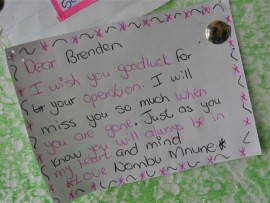 Dear Brenden
I wish you goodluck for
your operation. I will
miss you so much when
you are gone. Just as you
know you will always be in
my heart and mind
Love Nombu Mnune